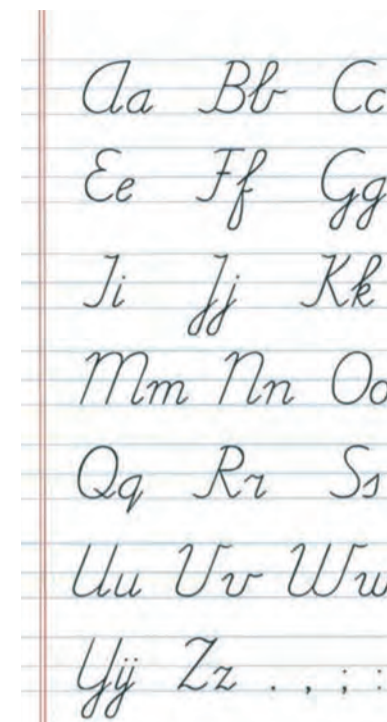 Aa Bb Cc
Ee Ff Gg
Ii Jj Kk
Mm Nn Oo
Qq Rr Ss
Uu Vv Ww
Yÿ Zz . , ; :